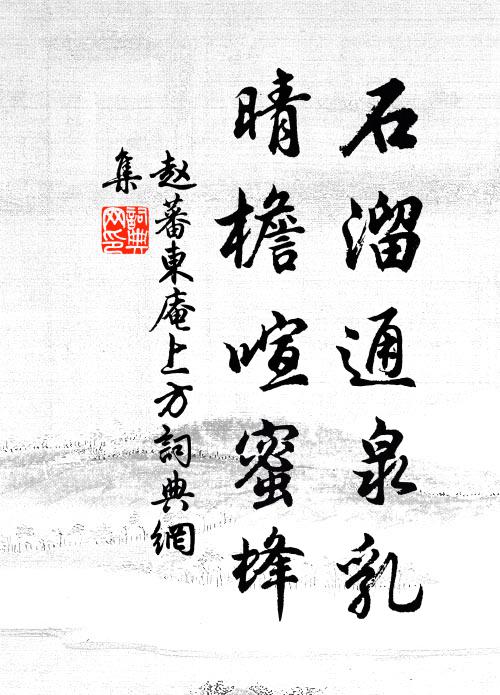 石溜通泉乳
晴檐喧蜜蜂
赵蕃東庵上方詞典網
集
詞典
网印